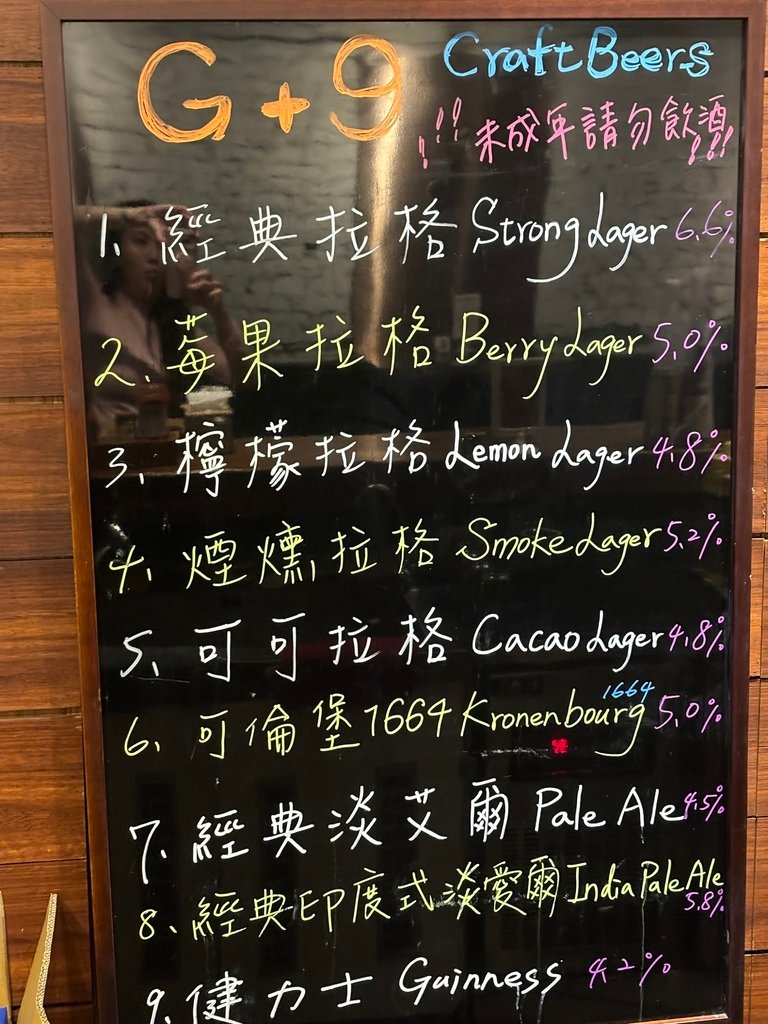 G+9 Craft Beers
!!! 未成年請勿飲酒 !!!
1. 經典拉格 Strong Lager 6.6%
2. 莓果拉格 Berry Lager 5.0%
3. 檸檬拉格 Lemon Lager 4.8%
4. 煙燻拉格 Smoke Lager 5.2%
5. 可可拉格 Cacao Lager 4.8%
1664
6. 可倫堡1664 Kronenbourg 5.0%
7. 經典淡艾爾 Pale Ale 4.5%
8. 經典印度式淡愛爾 India Pale Ale
5.8%
9. 健力士 Guinness 4.2%